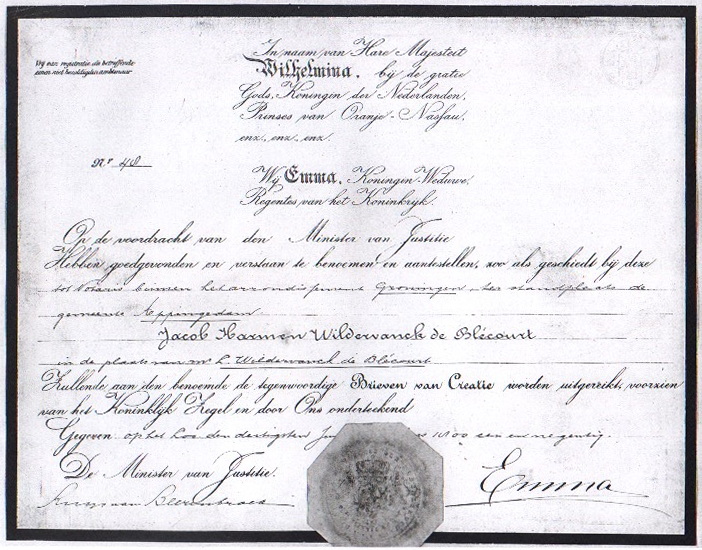 Vrij van registratie als betreffende
eenen met bezoldigden ambtenaar
In naam van Hare Majesteit
Wilhelmina, bij de gratie
Gods, Koningin der Nederlanden,
Prinses van Oranje-Nassau,
enz., enz., enz.
Nr 48
Wij Emma, Koningin-Weduwe,
Regentes van het Koninkrijk.
Op de voordracht van den Minister van Justitie
Hebben goedgevonden en verstaan te benoemen en aantestellen, zoo als geschiedt bij deze
tot Notaris binnen het arrondissement Groningen, ter standplaats de
gemeente Appingedam
Jacob Harmen Wildervanck de Blécourt
in de plaats van Mr L. Wildervanck de Blécourt
Zullende aan den benoemde de tegenwoordige Brieven van Creatie worden uitgereikt, voorzien
van het Koninklijk Zegel en door Ons onderteekend
Gegeven op het Loo den dertigsten 1800 een en negentig.
De Minister van Justitie.
Ruys van Beerenbroek
Emma